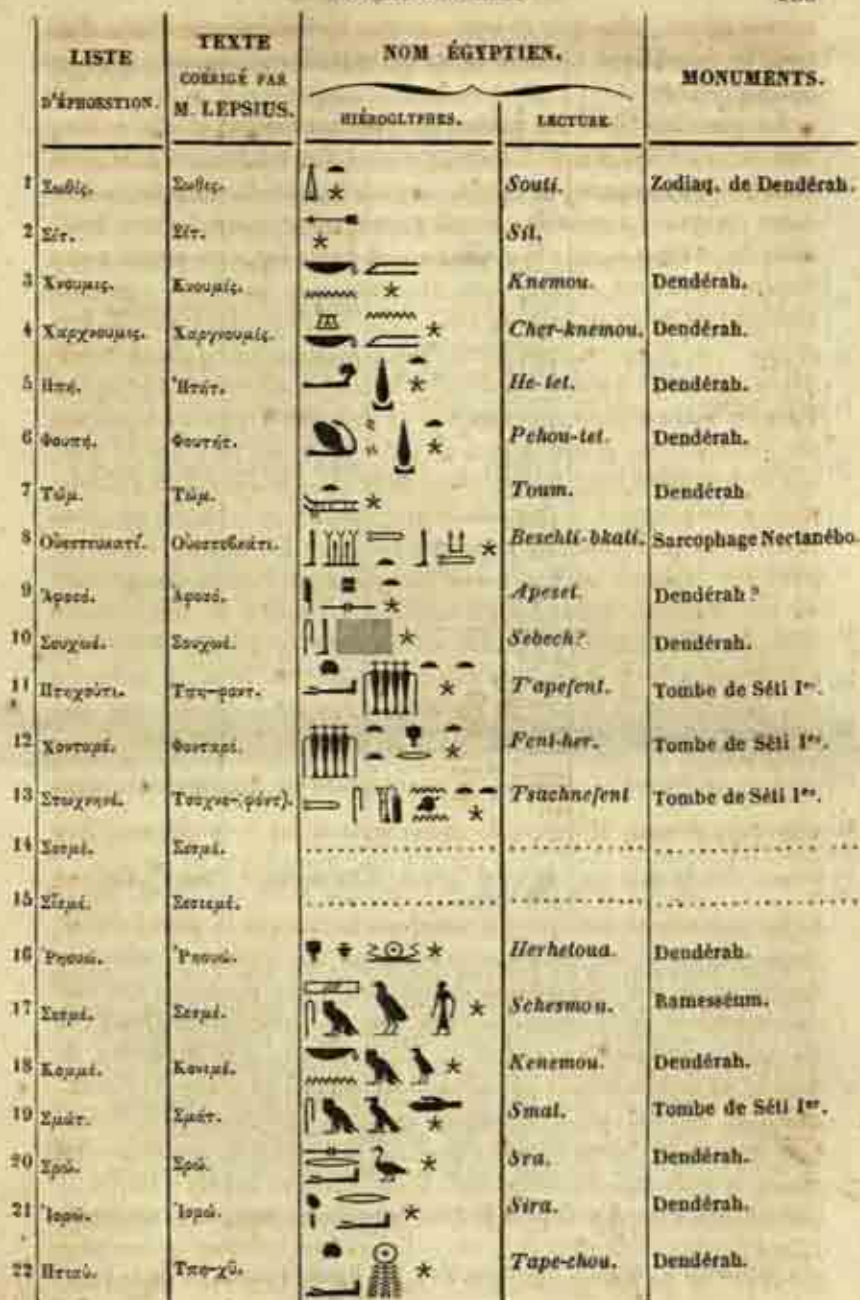 LISTE
D'ÉPHOESTION.
TEXTE
CORRIGÉ PAR
M. LEPSIUS.
NOM ÉGYPTIEN.
HIÉROGLYPHES.
LECTURE.
MONUMENTS.
1 Σωθίς. Σωθις. Souti. Zodiaq. de Dendérah.
2 Σίτ. Σίτ. Sit.
3 Χνουμις. Κνουμίς. Knemou. Dendérah.
4 Χαρχνουμις. Χαρχνουμίς. Cher-knemou. Dendérah.
5 Ηπή. Ἡτήτ. He-tet. Dendérah.
6 Φουπή. Φουτήτ. Pehou-tet. Dendérah.
7 Τώμ. Τώμ. Toum. Dendérah
8 Οὐεστευκατί. Οὐεστεβκάτι. Beschti-bkati. Sarcophage Nectanébo.
9 Ἀφοσό. Ἀφοσό. Apeset. Dendérah ?
10 Σουχωέ. Σουχωέ. Sebech? Dendérah.
11 Πτηχούτι. Τπη-φοντ. T'apefent. Tombe de Séti Ier.
12 Χονταρέ. Φονταρέ. Fent-her. Tombe de Séti Ier.
13 Στωχνηνέ. Τσοχνε-(φόντ). Tsachnefent Tombe de Séti Ier.
14 Σεσμέ. Σεσμέ.
15 Σισμέ. Σεσιεμέ.
16 Ῥηουώ. Ῥηουώ. Herhetoua. Dendérah.
17 Σεσμέ. Σεσμέ. Schesmou. Ramesséum.
18 Κομμέ. Κονιμέ. Kenemou. Dendérah.
19 Σμάτ. Σμάτ. Smat. Tombe de Séti Ier.
20 Σρώ. Σρώ. Sra. Dendérah.
21 Ἰσρώ. Ἰσρώ. Sira. Dendérah.
22 Πτιαύ. Τπη-χῦ. Tape-chou. Dendérah.